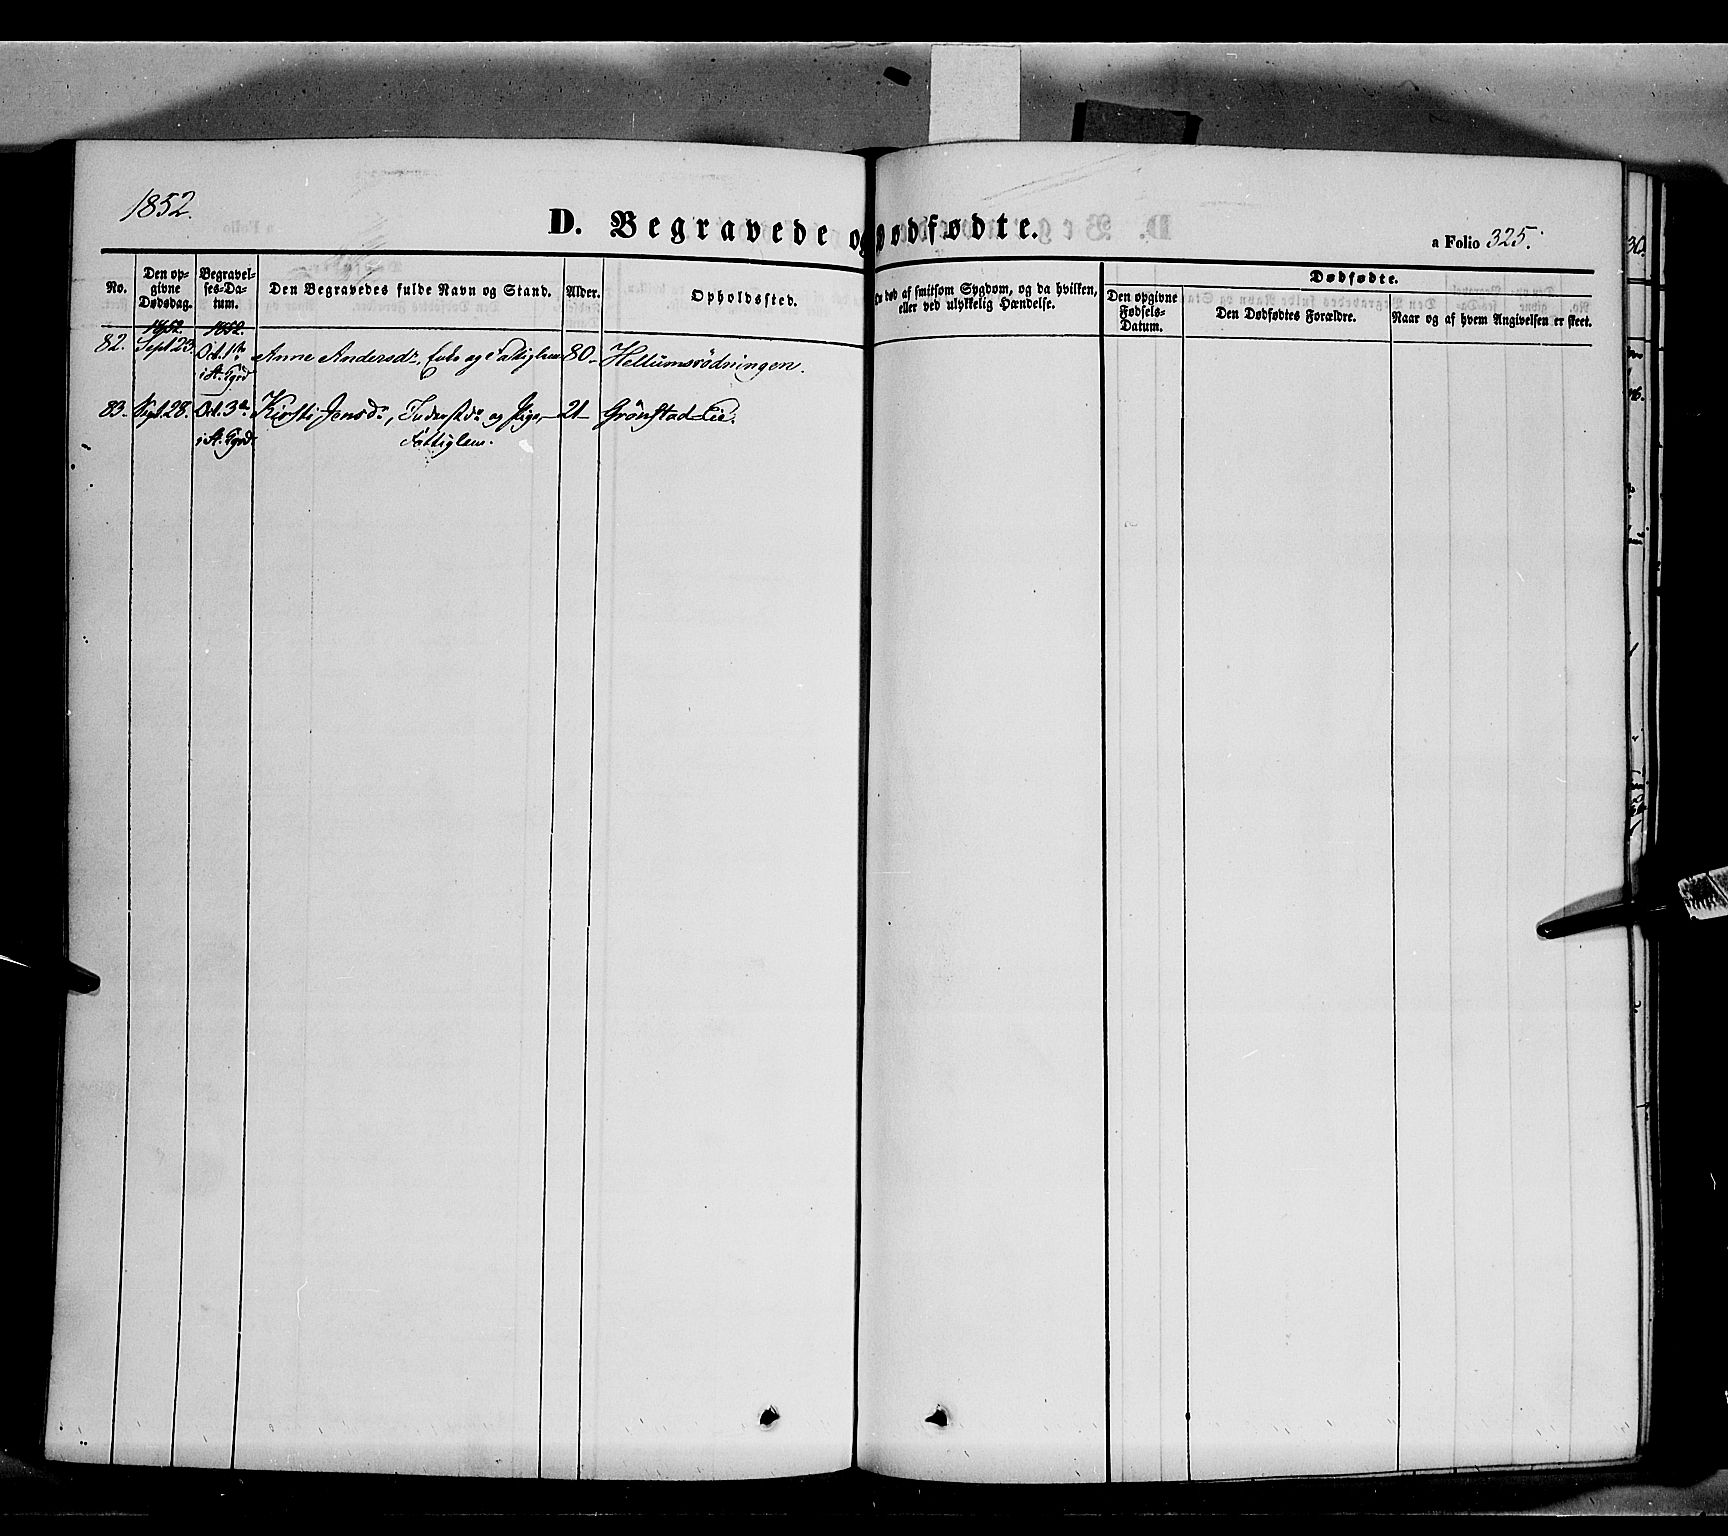 1852.
D. Begravede og Dødfødte.
a Folio 325.
No.
Den op-
givne
Dødsdag.
Begravel-
ses-Da-
tum.
Den Begravedes fulde Navn og Stand.
Alder.
Opholdssted.
død af smitsom Sygdom, og da hvilken,
eller ved ulykkelig Hændelse.
Dødfødte.
Den opgivne
Fødsels-
Datum.
Den Dødfødtes Forældre.
Naar og af hvem Angivelsen er skeet.
1852. 1852.
82. Sept 23. Oct. 1 Anne Andersd., Enke og Fattiglem 80 Hellumsrödningen.
i St. Tgrd
83. Sept. 28. Oct. 3 Kirsti Jensd., og Pige, 21 Grönstad-Eie.
i St. Tgrd. Fattiglem.